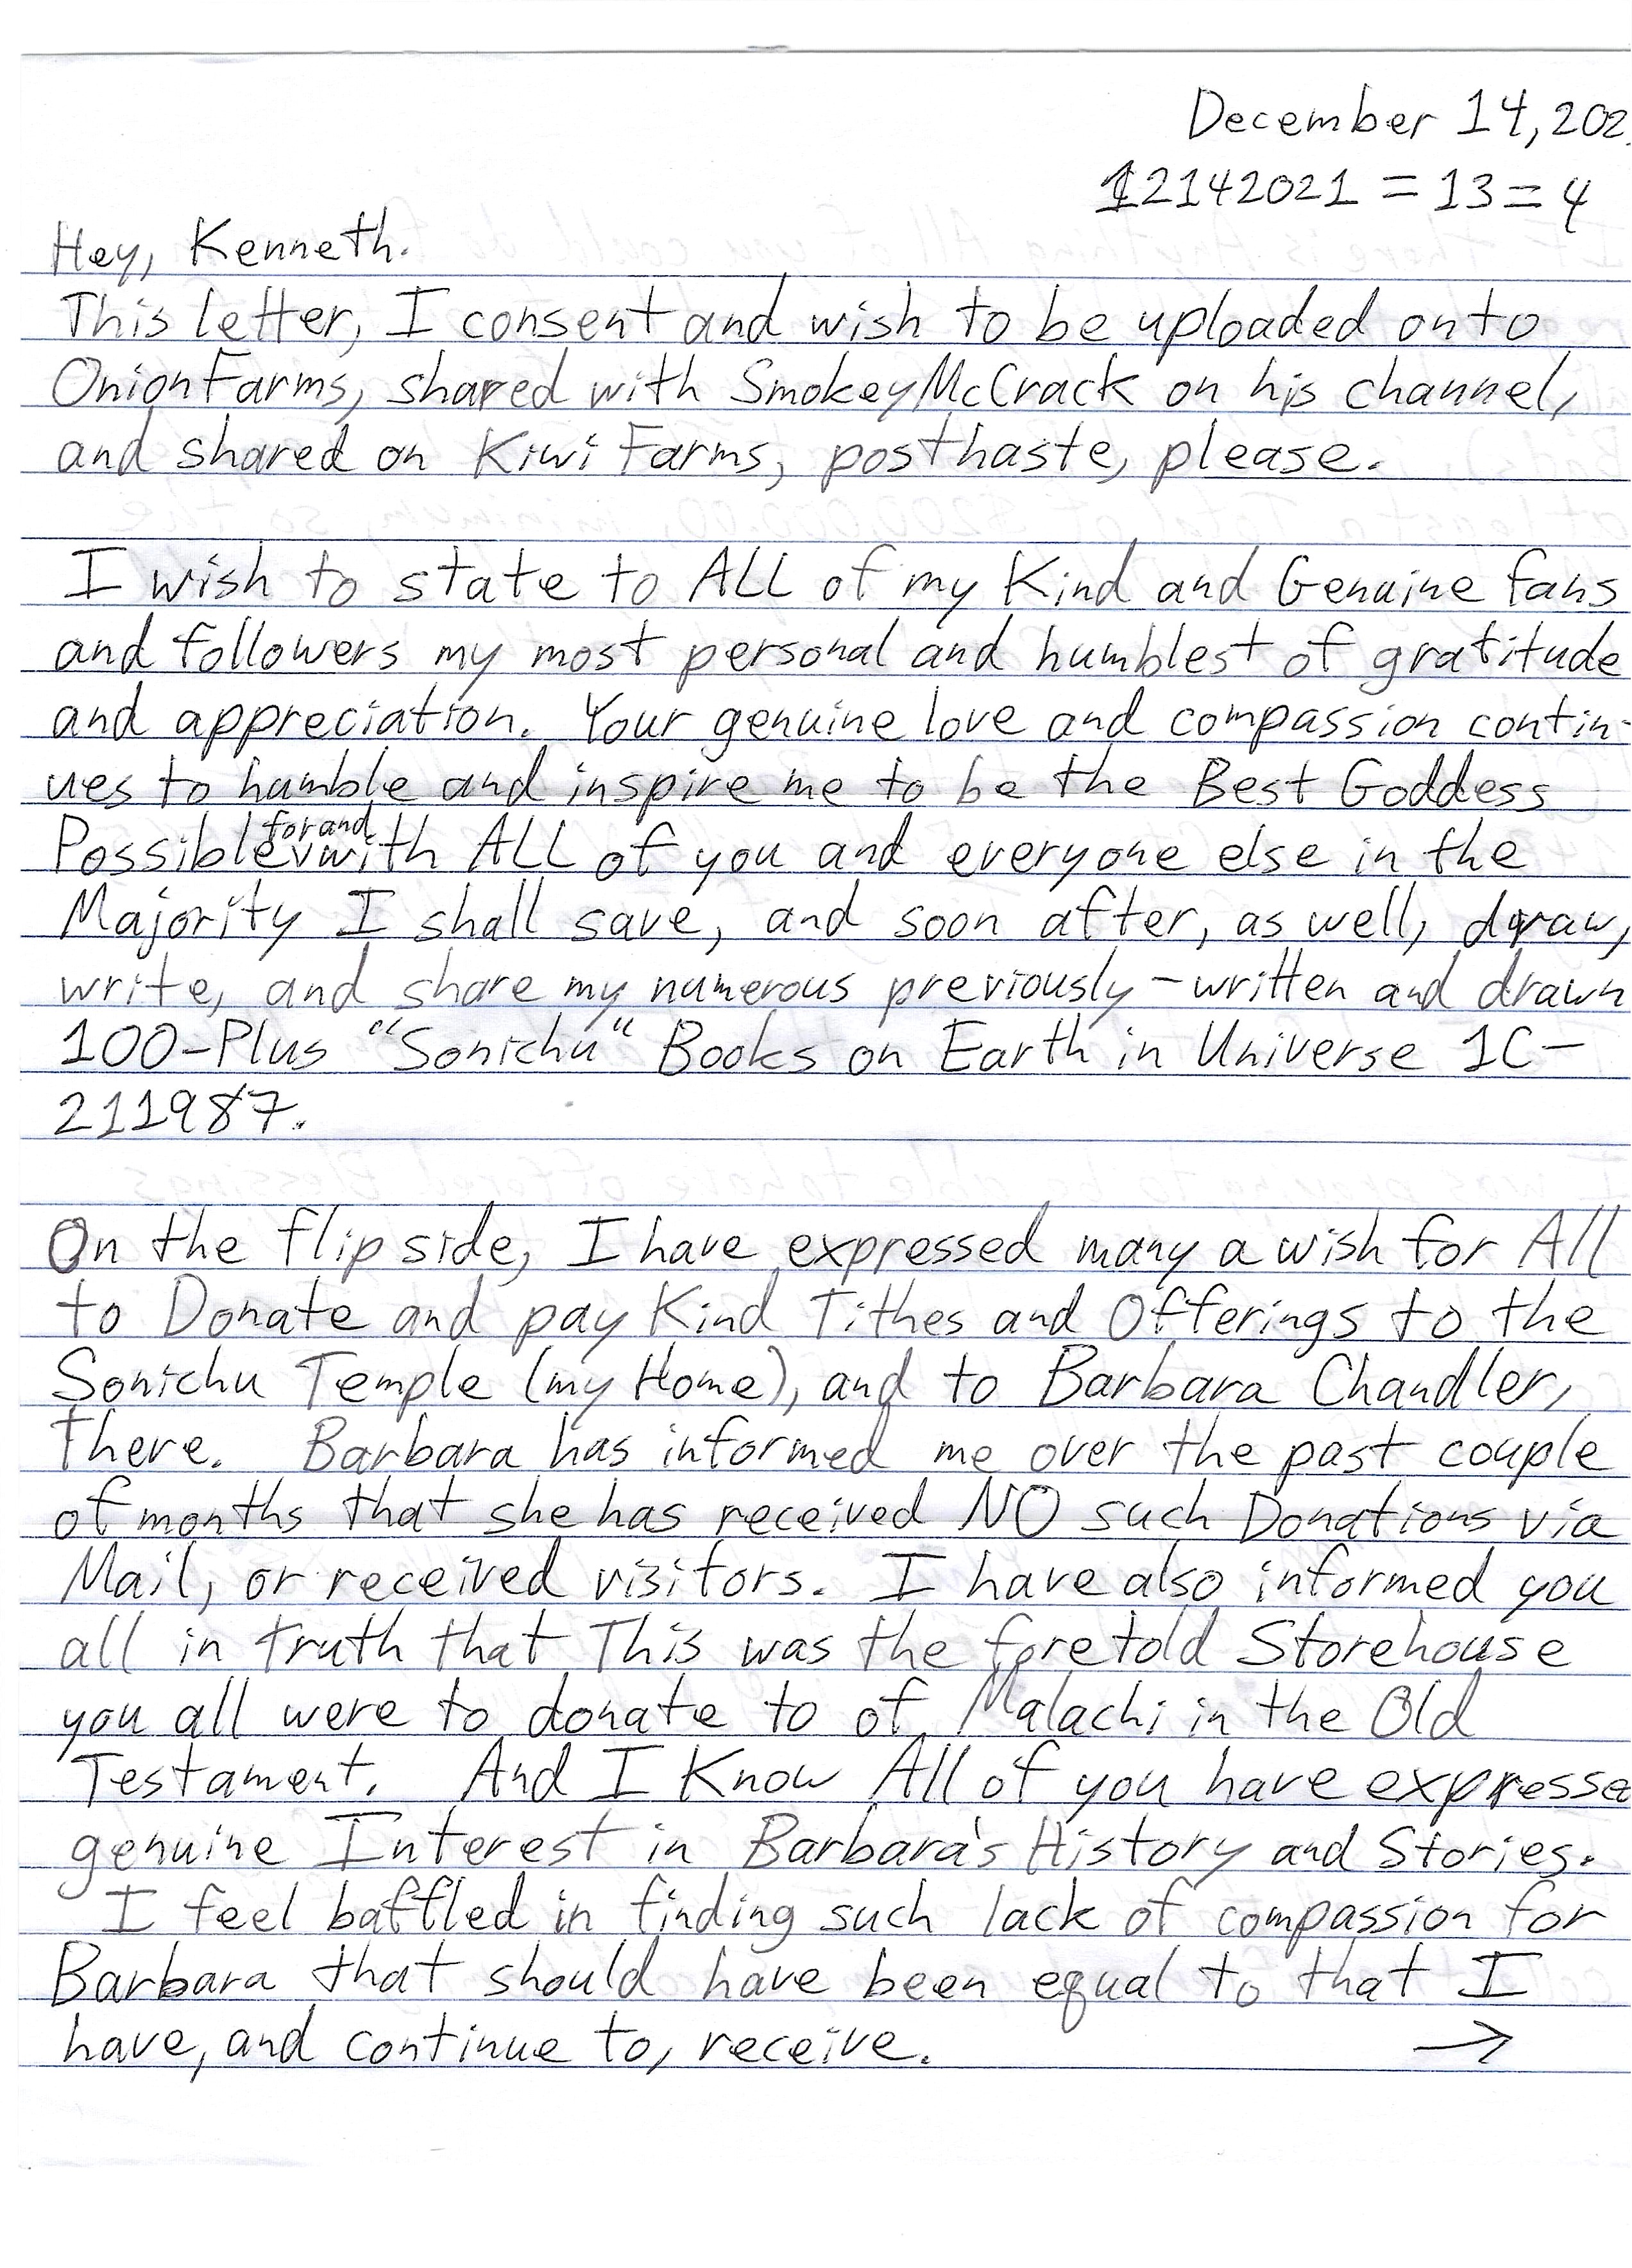 December 14, 202
12142021 = 13 = 4
Hey, Kenneth.
This letter, I consent and wish to be uploaded onto
OnionFarms, shared with SmokeyMcCrack on his channel,
and shared on Kiwi Farms, posthaste, please.
I wish to state to ALL of my Kind and Genuine fans
and followers my most personal and humblest of gratitude
and appreciation. Your genuine love and compassion contin-
ues to humble and inspire me to be the Best Goddess
for and
Possible with ALL of you and everyone else in the
Majority I shall save, and soon after, as well, draw,
write, and share my numerous previously-written and drawn
100-Plus "Sonichu" Books on Earth in Universe 1C-
211987.
On the flip side, I have expressed many a wish for All
to Donate and pay Kind Tithes and Offerings to the
Sonichu Temple (my Home), and to Barbara Chandler,
There. Barbara has informed me over the past couple
of months that she has received NO such Donations via
Mail, or received visitors. I have also informed you
all in truth that This was the foretold Storehouse
you all were to donate to of Malachi in the Old
Testament. And I Know All of you have expresse
genuine Interest in Barbara's History and Stories.
I feel baffled in finding such lack of compassion for
Barbara that should have been equal to that I
have, and continue to, receive. →